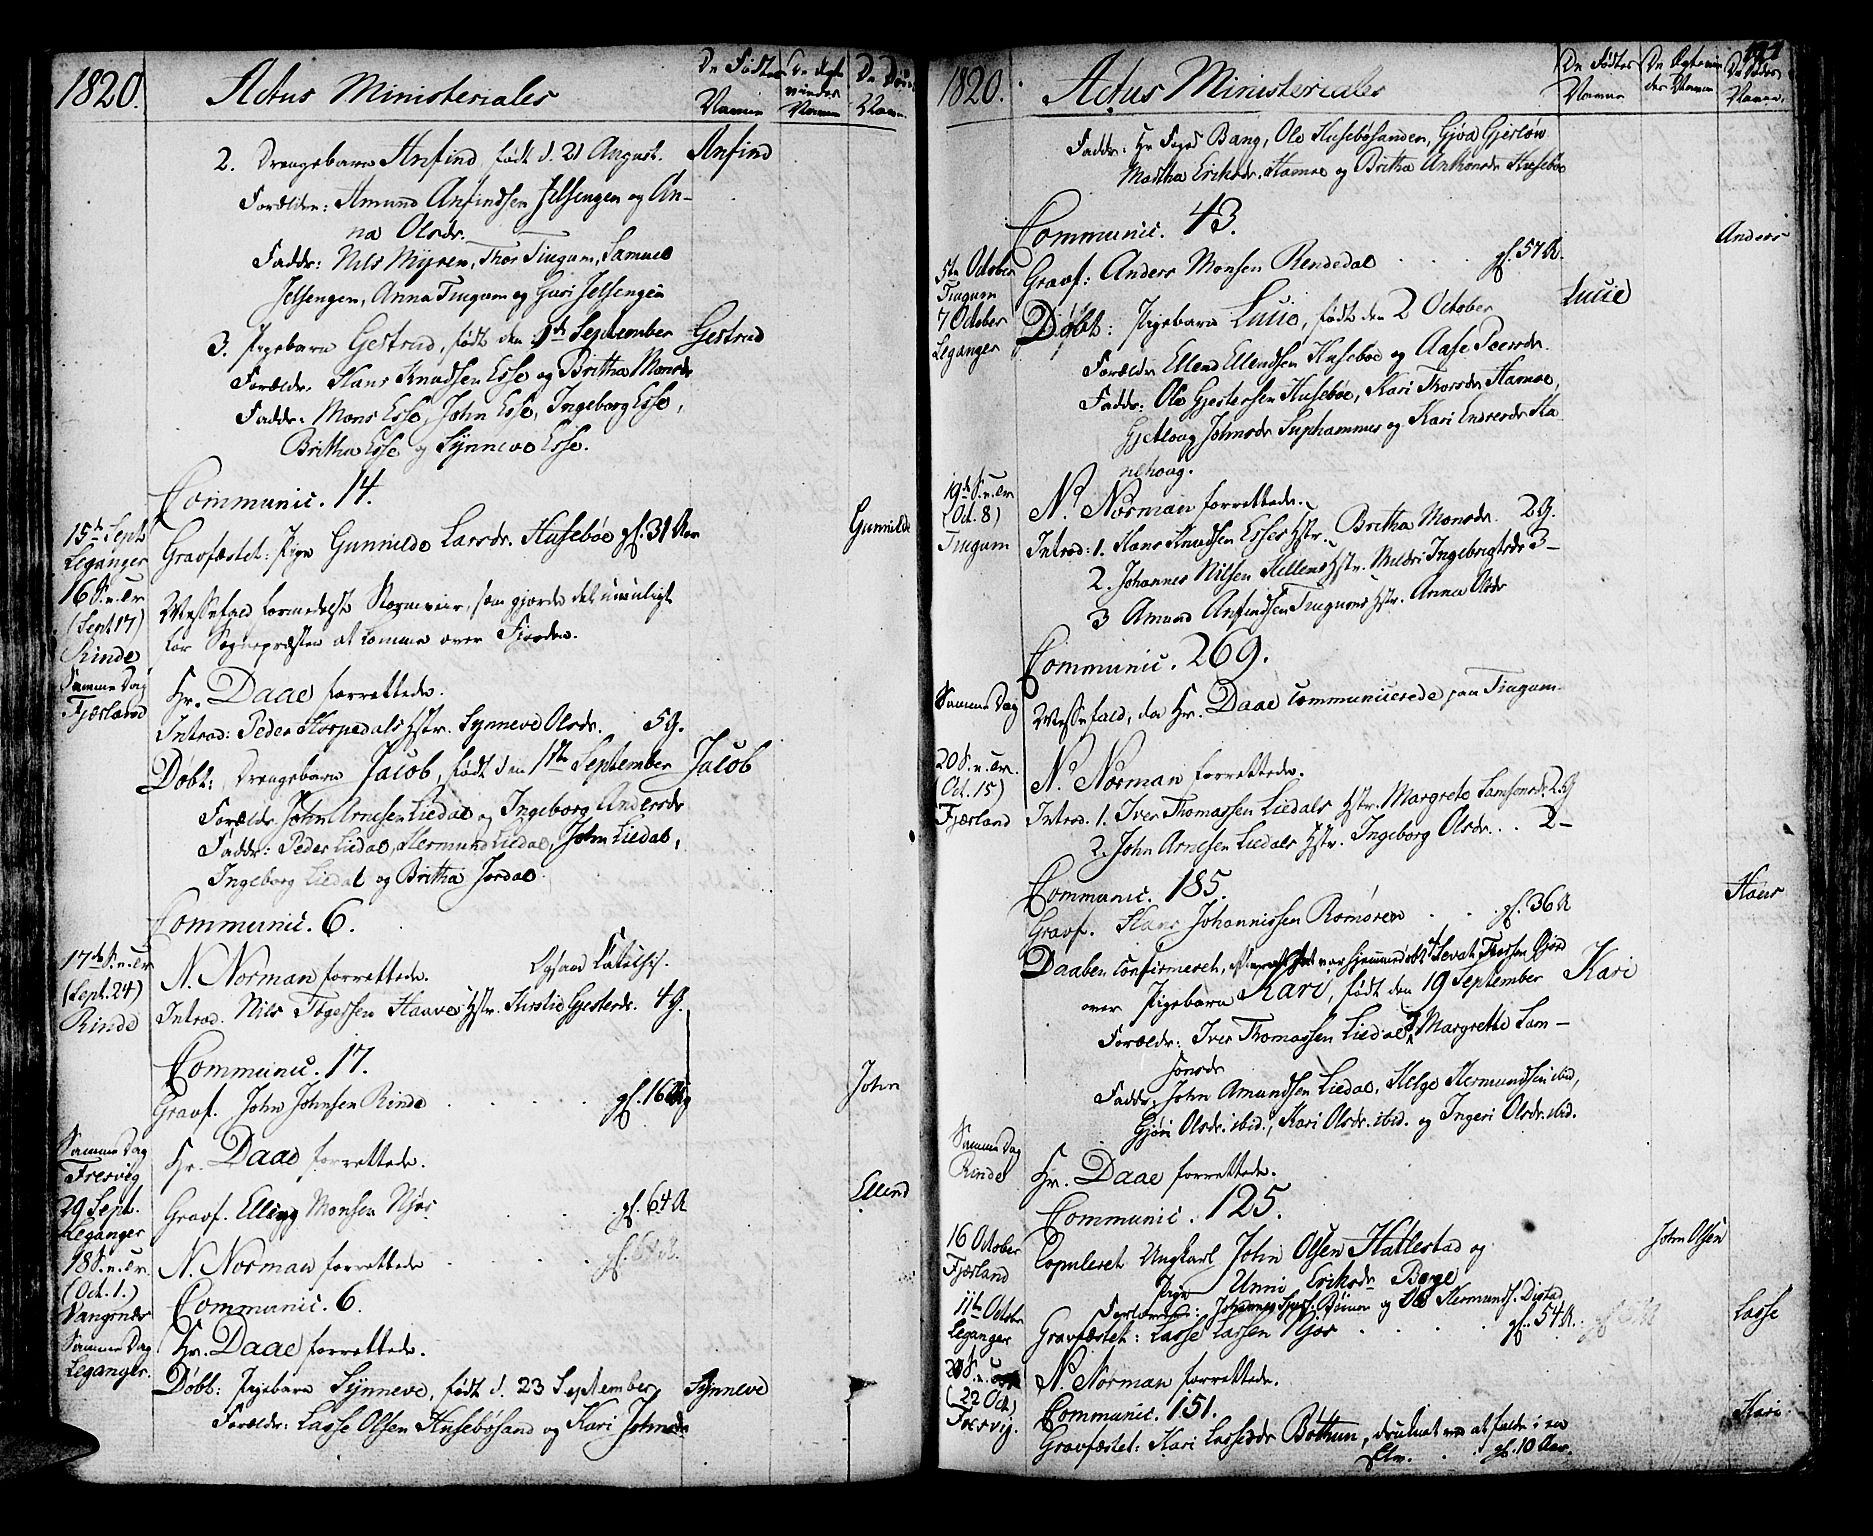 1820. Actus Ministeriales De Fødtes Navne De Ægte viedes Navne De Dødes Navne
2. Drengebarn Anfind, født d. 21 August. Anfind
Forældre: Amund Anfindsen Jelsengen og An-
na Olsdr.
Faddr: Nils Myren, Thor Tingum, Samuel
Jelsengen, Anna Tingum og Guri Jelsengen
3. Pigebarn Gestrud, født den 1ste September Gestrud
Forældr. Hans Knudsen Esse og Britha Monsdr
Faddr. Mons Esse, John Esse, Ingeborg Esse,
Britha Esse og Synneve Esse.
Communic. 14.
15de Sept. Leganger Gravfæstet: Pige Gunnilde Larsdr. Husebøe gl. 31 Aar Gunnilde
16 S. e. Tr. (Sept 17) Rinde Messefald formedelst Stormveir, som gjorde det umuligt
for Sognepræsten at komme over Fjorden.
Samme Dag Fjærland Hr. Daae forrettede.
Introd: Peder Skorpedals Hstr. Synneve Olsdr. 5g.
Døbt: Drengebarn Jacob, født den 1ste September Jacob
Forældr. John Arnesen Liedal og Ingeborg Andersdr
Faddr: Peder Liedal, Hermund Liedal, John Liedal,
Ingeborg Liedal og Britha Jordal.
Communic. 6.
17de S. e. Tr. (Sept. 24) Rinde N. Norman forrettede. Ogsaa Catechis.
Introd. Nils Togessen Haaves Hstr. Kirstie Gjestsdr. 4g.
Communic. 17.
Gravf. John Johnsen Rinde gl. 16 John
Samme Dag Fresvig Hr. Daae forrettede.
29 Sept. Leganger Gravf. Elling Monsen Njøs gl. 64 A Ellend
18 S. e. Tr. (Oct. 1.) Vangsnæs N. Norman forrettede
Communic. 6.
Samme Dag Leganger. Hr. Daae forrettede.
Døbt: Pigebarn Synneve, født d. 23 September, Synneve
Forældr: Lasse Olsen Husebøsand og Kari Johnsdr
1820. Actus Ministeriales De Fødtes Navne De Ægteviedes Navne De Dødes Navne
Faddr: Hr Foged Bang, Ole Husebøsanden, Gjøa Gjerløw
Martha Eriksdr. Hamre og Britha Anthonsdr Husebøe
Communic. 43.
5te October Tingum Gravf: Anders Monsen Rendedal gl. 57 A. Anders
7 October Leganger Døbt: Pigebarn Lucie, født den 2 October Lucie
Forældr Ellend Ellendsen Husebøe og Aase Peersdr.
Faddr: Ole Gjestersen Husebøe, Kari Thorsdr Hamre,
Gjetloug Johnsdr Suphammer og Kari Endresdr Ha
nehoug.
19de S. e. Tr. (Oct. 8) Tingum N. Norman forrettede.
Introd: 1. Hans Knudsen Esses Hstr. Britha Monsdr. 2g.
2. Johannes Nilsen Hellens Hstr. Ingebrigtsdr 3-
3 Amund Anfindsen Tingums Hstr. Anna Olsdr
Communic. 269.
Samme Dag Messefald, da Hr. Daae communicerede paa Tingum.
20 S. e. Tr. (Oct. 15) Fjærland N. Norman forrettede.
Introd. 1. Iver Thomassen Liedals Hstr. Margrete Samsonsdr. 2g
2. John Arnesen Liedals Hstr. Ingeborg Olsdr. . . 2-
Communic. 185.
Gravf. Hans Johannissen Romøren . . gl. 36 A Hans
Daaben confirmeret, var hjemmedøbt af
over Pigebarn Kari, født den 19 September Kari
Forældr: Iver Thomassen Liedal og Margrette Sam-
sonsdr
Faddr. John Amundsen Liedal, Helge Hermundsen ibid,
Gjøri Olsdr. ibid., Kari Olsdr. ibid. og Ingeri Olsdr. ibid.
Samme Dag Rinde Hr. Daae forrettede.
Communic. 125.
16 October Fjærland Copuleret Ungkarl John Olsen Hattestad og John Olsen
Pige Unni Eriksdr Berge
Forlovere: Johannes Bøien og Ole Hermunds. Distad
11te Octobr Leganger Gravfæstet: Lasse Lassen Njøs gl. 54 A. Lasse
(22 Oct.) Fresvig. N. Norman forrettede.
Communic. 151.
Gravfæstet: Kari Lassesdr Bøthun, druknet ved at falde i en Kari
Elv. gl. 10 Aar.